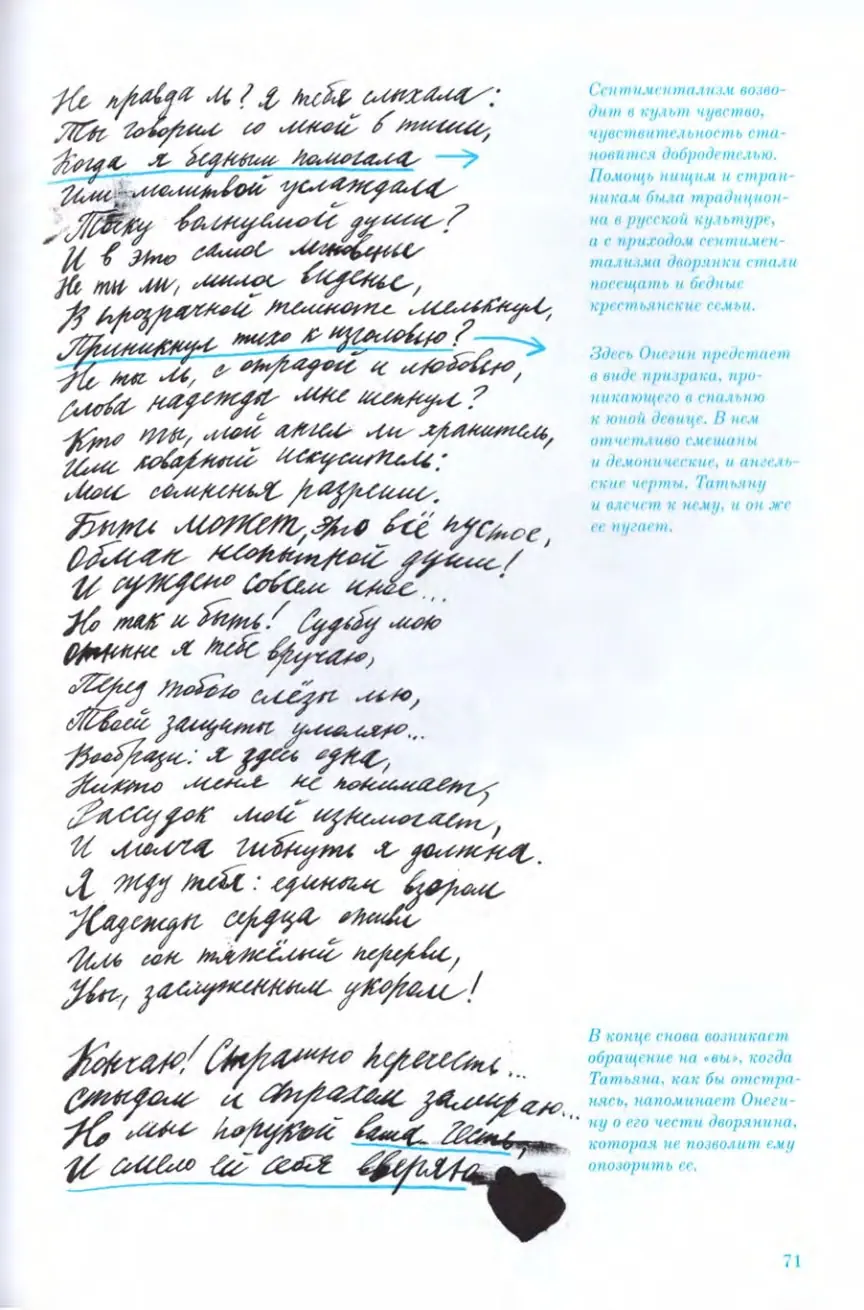 Не правда ль? Я тебя слыхала:
Ты говорил со мной в тиши,
Когда я бедным помогала
Или молитвой услаждала
Тоску волнуемой души?
И в это самое мгновенье
Не ты ли, милое виденье,
В прозрачной темноте мелькнул,
Приникнул тихо к изголовью?
Не ты ль, с отрадой и любовью,
Слова надежды мне шепнул?
Кто ты, мой ангел ли хранитель,
Или коварный искуситель:
Мои сомненья разреши.
Быть может, это всё пустое,
Обман неопытной души!
И суждено совсем иное...
Но так и быть! Судьбу мою
Отныне я тебе вручаю,
Перед тобою слёзы лью,
Твоей защиты умоляю...
Вообрази: я здесь одна,
Никто меня не понимает,
Рассудок мой изнемогает,
И молча гибнуть я должна.
Я жду тебя: единым взором
Надежды сердца оживи
Иль сон тяжёлый перерви,
Увы, заслуженным укором!
Кончаю! Страшно перечесть...
Стыдом и страхом замираю...
Но мне порукой ваша честь,
И смело ей себя вверяю
Сентиментализм возво-
дит в культ чувство,
чувствительность ста-
новится добродетелью.
Помощь нищим и стран-
никам была традицион-
на в русской культуре,
а с приходом сентимен-
тализма дворянки стали
посещать и бедные
крестьянские семьи.
Здесь Онегин предстает
в виде призрака, про-
никающего в спальню
к юной девице. В нем
отчетливо смешаны
и демонические, и ангель-
ские черты. Татьяну
и влечет к нему, и он же
ее пугает.
В конце снова возникает
обращение на «вы», когда
Татьяна, как бы отстра-
нясь, напоминает Онеги-
ну о его чести дворянина,
которая не позволит ему
опозорить ее.
71